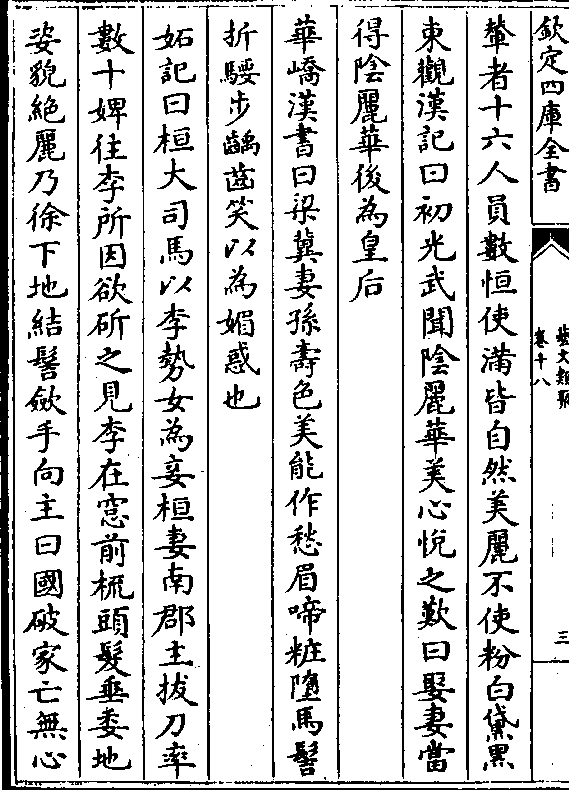 欽定四庫全書
藝文類聚
卷十八
三
輦者十六人員數恒使滿皆自然美麗不使粉白黛黑
東觀漢記曰初光武聞陰麗華美心悅之歎曰娶妻當
得陰麗華後為皇后
華嶠漢書曰梁冀妻孫壽色美能作愁眉啼粧墮馬髻
折騕步齲齒笑以為媚惑也
妬記曰桓大司馬以李勢女為妾桓妻南郡主拔刀率
數十婢往李所因欲斫之見李在窓前梳頭髮垂委地
姿貌絶麗乃徐下地結髻斂手向主曰國破家亡無心